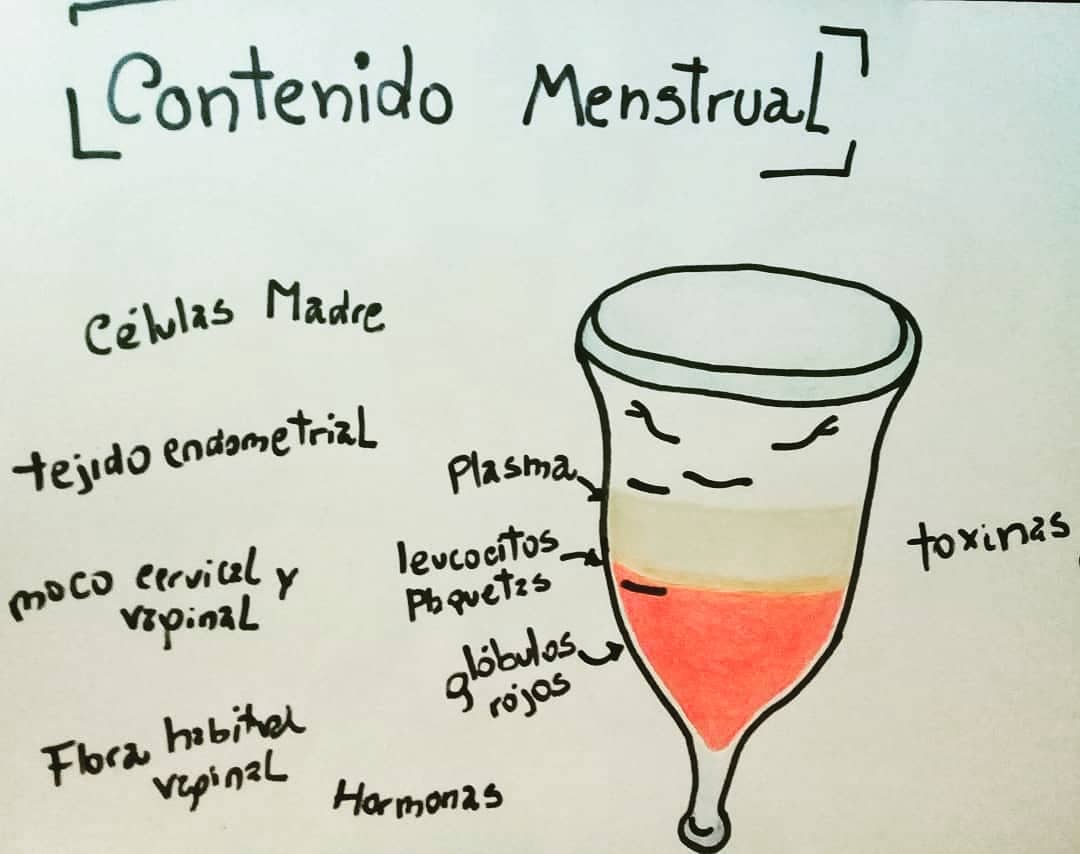 Contenido Menstrual
Células Madre
tejido endometrial
moco cervical y
vaginal
Flora habitual
vaginal
Hormonas
Plasma
leucocitos
Plaquetas
glóbulos
rojos
toxinas